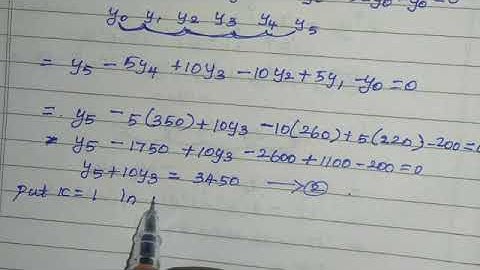 y₀ y₁ y₂ y₃ y₄ y₅
= y₅ - 5y₄ + 10y₃ - 10y₂ + 5y₁ - y₀ = 0
= y₅ - 5(350) + 10y₃ - 10(260) + 5(220) - 200 = 0
y₅ - 1750 + 10y₃ - 2600 + 1100 - 200 = 0
y₅ + 10y₃ = 3450 → ②
put K = 1 In